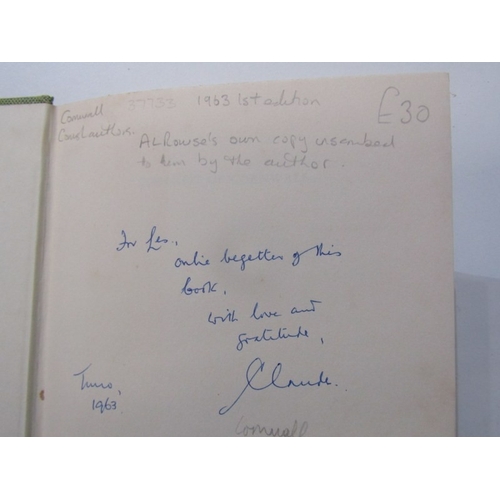 Cornwall 37733 1963 1st edition £30
Cornish authors.
AL Rowse's own copy inscribed
to him by the author.
For Les.,
onlie begetter of this
book,
with love and
gratitude,
Claude.
Truro,
1963
Cornwall